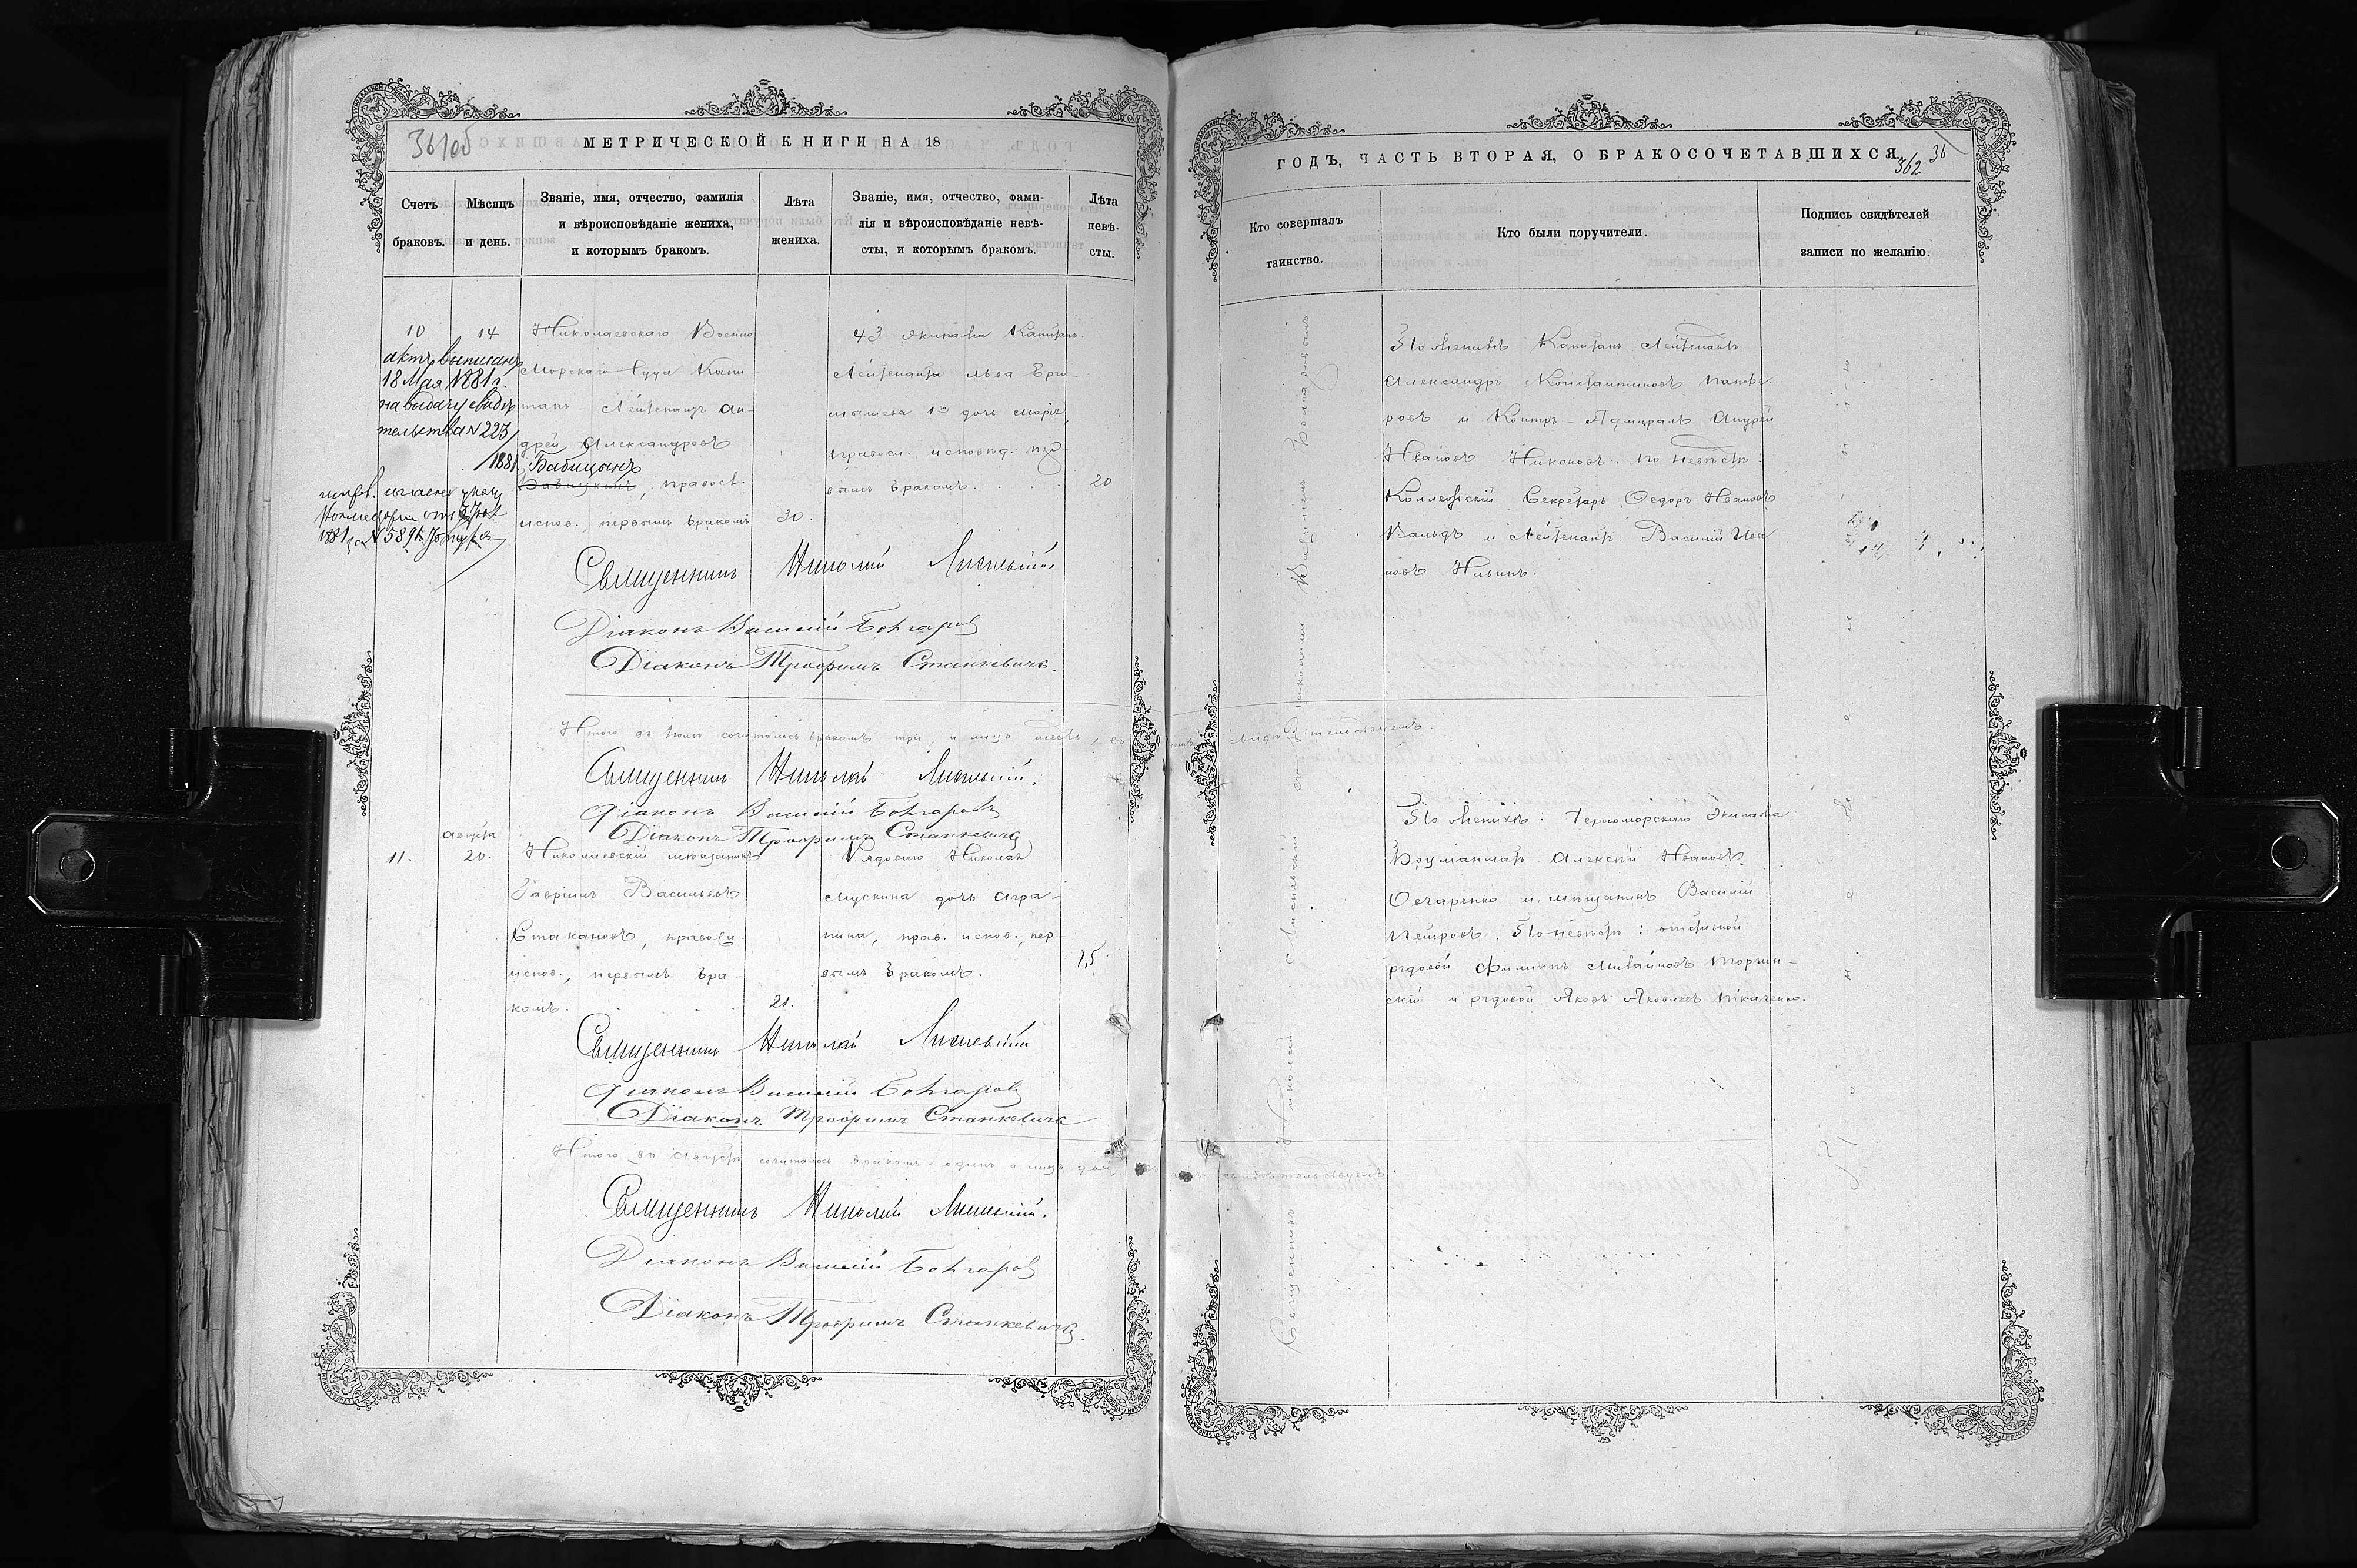 361об
МЕТРИЧЕСКОЙ КНИГИ НА 18
Счетъ браковъ.
Мѣсяцъ и день.
Званіе, имя, отчество, фамилія
и вѣроисповѣданіе жениха,
и которымъ бракомъ.
Лѣта
жениха.
Званіе, имя, отчество, фами-
лія и вѣроисповѣданіе невѣ-
сты, и которымъ бракомъ.
Лѣта
невѣ-
сты.
10
14
актъ выписанъ
18 Мая 1881 г.
на выдачу свидѣ
тельства № 223
1881
Николаевскаго Военно
Морскаго Суда Капи-
танъ-Лейтенантъ Ан-
дрей Александровъ
Бабицынъ
, правосл.
испов., первымъ бракомъ
30.
43 Экипажа Капитанъ
Лейтенанта Льва Ерго-
мышева дочь Марія,
правосл. исповѣд. пер-
вымъ бракомъ.
20
Священникъ Николай Лисневскій
Діаконъ Василій Болгаровъ
Діаконъ Трофимъ Станкевичъ.
Итого въ Іюлѣ сочеталось бракомъ три, а лицъ шесть, въ чемъ свидѣтельствуемъ.
Священникъ Николай Лисневскій.
Діаконъ Василій Болгаровъ
Діаконъ Трофимъ Станкевичъ
11.
Августа
20.
Николаевскій мѣщанинъ
Гавріилъ Васильевъ
Стакановъ, правосл.
испов., первымъ бра-
комъ.
21.
Рядоваго Николая
Мускина дочь Агра-
пина, прав. испов., пер-
вымъ бракомъ.
15
Священникъ Николай Лисневскій
Діаконъ Василій Болгаровъ
Діаконъ Трофимъ Станкевичъ
Итого въ Августѣ сочеталось бракомъ одинъ а лицъ два, въ чемъ свидѣтельствуемъ
Священникъ Николай Лисневскій.
Діаконъ Василій Болгаровъ
Діаконъ Трофимъ Станкевичъ.
ГОДЪ, ЧАСТЬ ВТОРАЯ, О БРАКОСОЧЕТАВШИХСЯ.
362
36
Кто совершалъ
таинство.
Кто были поручители.
Подпись свидѣтелей
записи по желанію.
Священникъ Николай Лисневскій съ Діакономъ Василіемъ Болгаровымъ
По женихѣ Капитанъ Лейтенантъ
Александръ Константиновъ
и Контръ-Адмиралъ Андрей
Ивановъ Никоновъ. по невѣстѣ:
Коллежскій Секретарь Федоръ Ивановъ
Вальдъ и Лейтенантъ Василій Ива
новъ Ильинъ.
По женихѣ: Черноморскаго Экипажа
Боцманматъ Алексѣй Ивановъ
Овчаренко и мѣщанинъ Василій
Петровъ. По невѣстѣ: отставной
рядовой Филиппъ Михайловъ Торчин-
скій и рядовой Яковъ Яковлевъ Ткаченко.